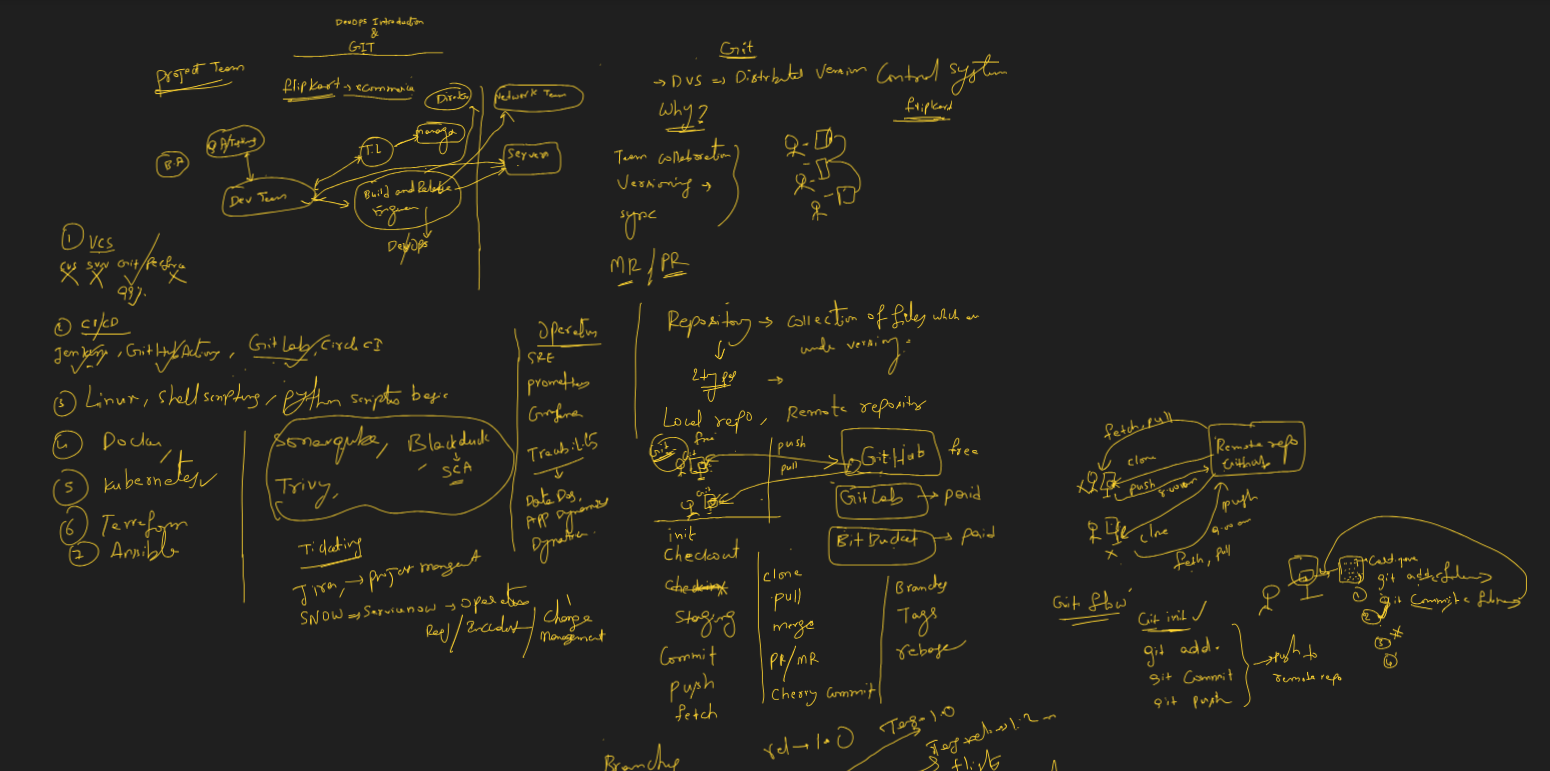 DevOps Introduction
&
GIT
Project Team
flipkart → ecommerce
Director
Network Team
QA/Testing
B.A
T.L
manager
Servers
Dev Team
Build and Release
Engineer
DevOps
① VCS
CVS SVN Git/Perforce
99%
② CI/CD
Jenkins, GitHub Actions, GitLab, Circle CI
③ Linux, Shell scripting, python scripts basic
④ Docker,
⑤ Kubernetes
⑥ Terraform
⑦ Ansible
Sonarqube, Blackduck
SCA
Trivy,
Ticketing
Jira, → project
SNOW → Servicenow → Operation
Req/Incident/Change
Management
Operation
SRE
prometheus
Grafana
Data Dog,
APP Dynamics
Git
→ DVS ⇒ Distributed Version Control System
Why?
flipkard
Team collaboration
Versioning →
sync
MR / PR
Repository → collection of files
under versioning.
2 types →
Local repo, Remote repository
Git
free
push
pull
GitHub free
GitLab → paid
Git
BitBucket → paid
init
Checkout
Staging
Commit
push
fetch
clone
pull
merge
PR/MR
Cherry Commit
Branches
Tags
rebase
fetch, pull
Remote repo
Github
clone
push
clone
push
pull
Git flow
Git init ✓
git add.
git Commit
git push
→ push to
remote repo
git add
① git Commit
②
③
④
rel → 1.0